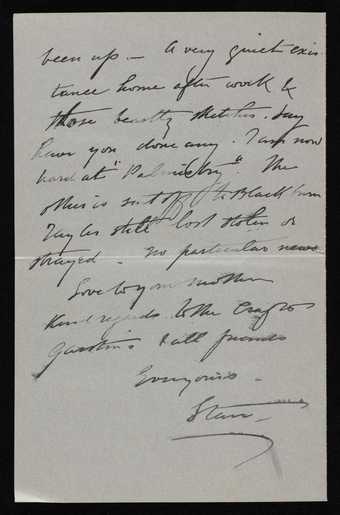 been up – A very quiet exis
tance home after work &
those beastly sketches. Say
have you done any. I am now
hard at "Palmistry". The
other is sent off to Blackburn
still lost stolen or
strayed. No particular news
Love to your mother
Kind regards to the Crafts
Garstins & all friends
Ever yours –
Starr